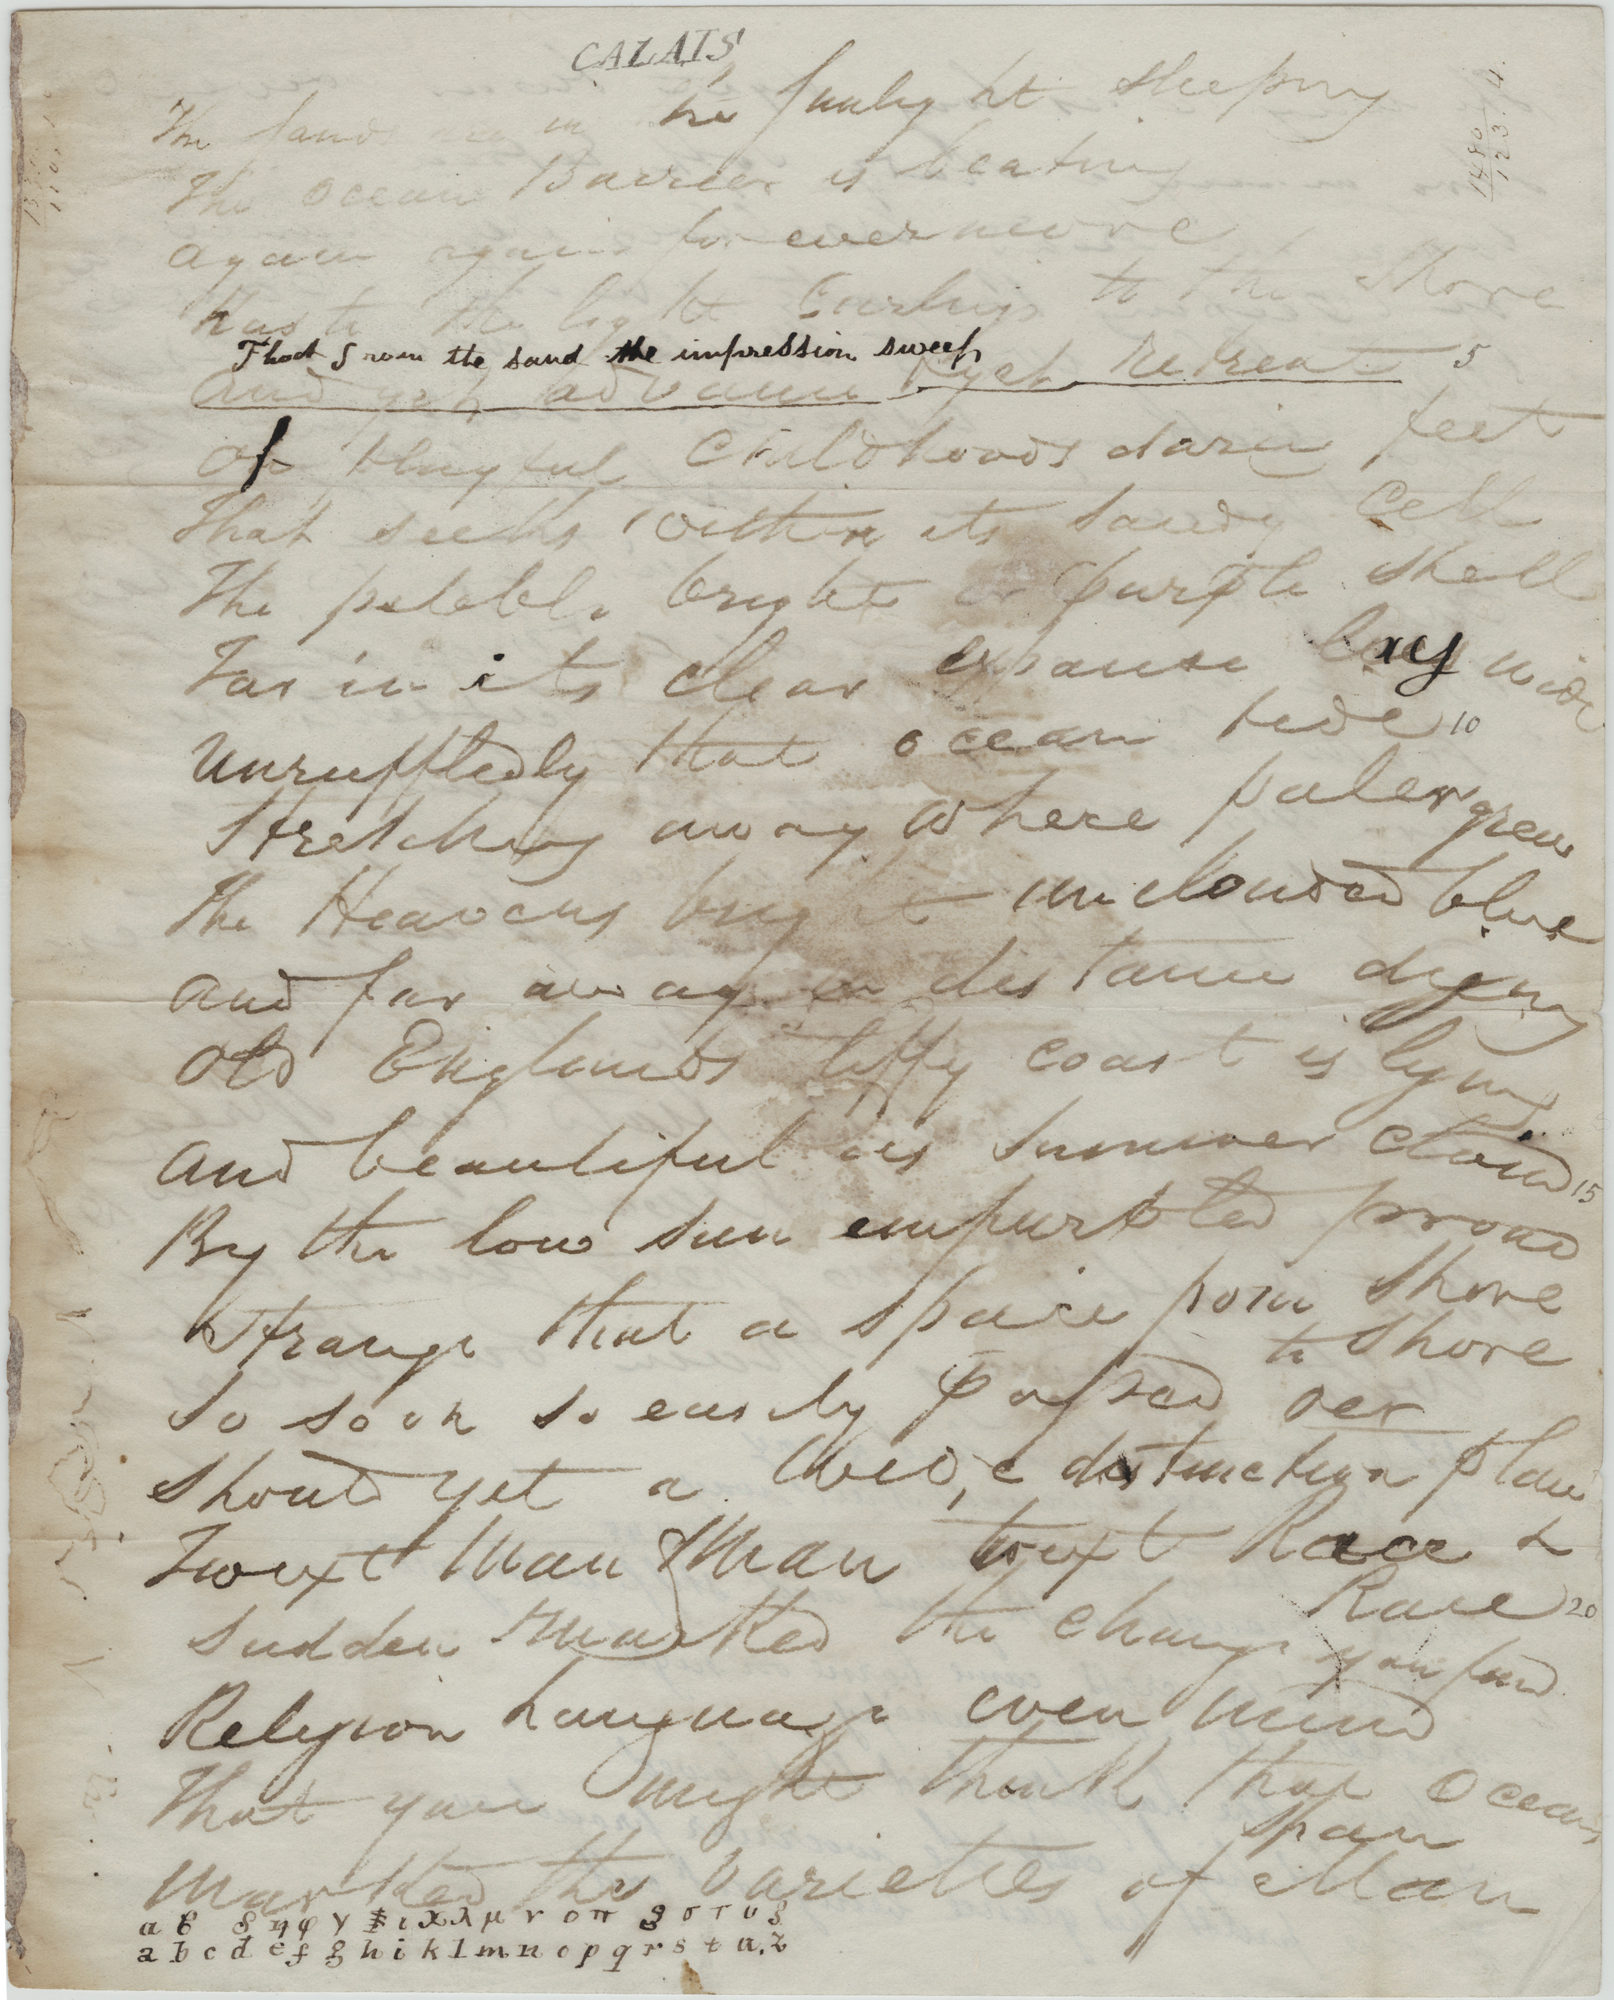 CALAIS
The sands are in the sunlight sleeping
The ocean Barrier is beating
again again for evermore
Hast the light Curling to the Shore
That from the sand the impression sweep
and yet advance & yet retreat 5
of playful Childhoods darin feet
That seeks within its sandy Cell
The pebble bright or purple shell
Far in its clear expanse lay wide
Unruffledly that ocean tide 10
Stretching away where paler grew
The Heavens bright unclouded blue
and far away in distance dying
Old Englands cliffy coast is lying
and beautiful as summer cloud 15
By the low sun empurpled proud
Strange that a space from shore
to shore
So soon so easily passed oer
Should yet a wide distinction place
Twixt Man & Man twixt Race &
Race 20
Sudden & marked the change you find
Religion Language even mind
That you might think that oceans
Span
Marked the varieties of Man
a b c d e f g h i k l m n o p q r s t u z
1480
123.4.